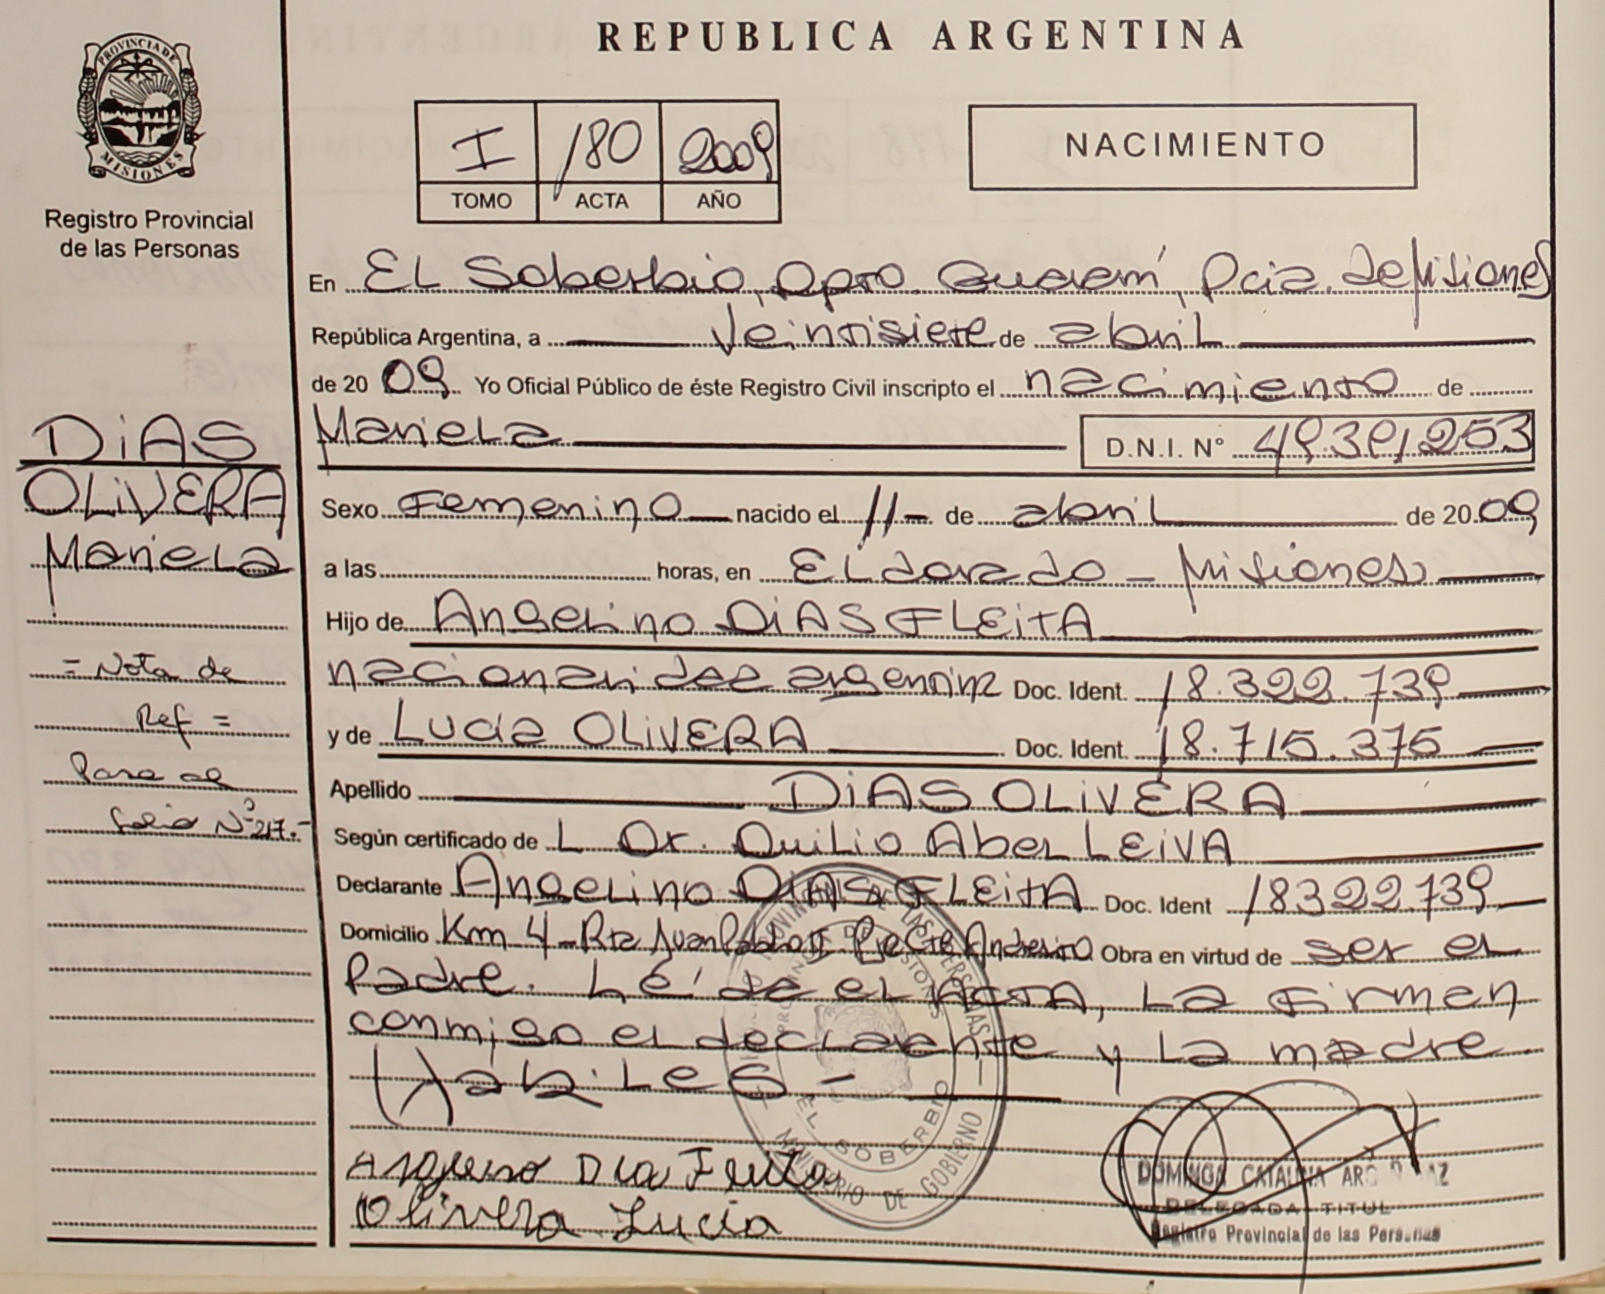 REPUBLICA ARGENTINA
PROVINCIA DE MISIONES
Registro Provincial
de las Personas
I 180 2009
TOMO ACTA AÑO
NACIMIENTO
En EL Soberbio, Dpto. Guaraní, Pcia. de Misiones
República Argentina, a veintisiete de abril
de 2009 Yo Oficial Público de éste Registro Civil inscripto el nacimiento de
Mariela D.N.I. N° 49.391.253
Sexo Femenino nacido el 11 - de abril de 2009
a las horas, en Eldorado - Misiones
Hijo de Angelino DiAS FLEiTA
nacionalidad argentina Doc. Ident. 18.322.739
y de Lucia OLiVERA Doc. Ident. 18.715.375
Apellido DiAS OLiVERA
Según certificado de L Dr. Duilio Abel LEiVA
Declarante Angelino DiAS FLEitA Doc. Ident 18322.739
Domicilio Km 4 - Rta Juan Pablo II Obra en virtud de ser el
Padre. Leída el ACTA, La Firman
conmigo el declarante y La madre
Hábiles -
Olivera Lucia
DiAS
OLiVERA
Mariela
= Nota de
Ref =
Pasa al
folio Nº 217.-
REGISTRO PROVINCIAL DE LAS PERSONAS
PROVINCIA DE MISIONES
EL SOBERBIO
MINISTERIO DE GOBIERNO
DOMINGA CATALINA
DELEGADA TITUL
Registro Provincial de las Personas